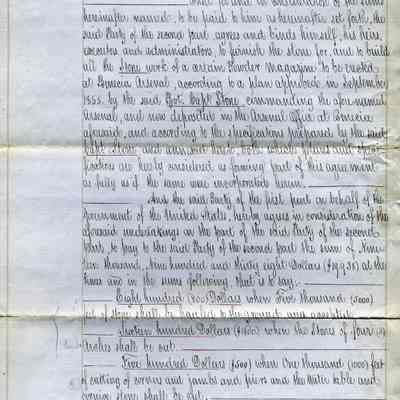 in consideration of the sums
hereinafter named, to be paid to him as hereinafter set forth, the
said Party of the second part agrees and binds himself, his heirs,
executors and administrators, to furnish the stone for, and to build
all the Stone work of a certain Powder Magazine to be erected
at Benicia Arsenal, according to a plan approved in September
1855 by the said Bvt. Capt Stone, commanding the aforenamed
Arsenal, and now deposited in the Arsenal Office at Benicia
aforesaid, and according to the specifications prepared by the said
Capt Stone and annexed hereto, both which Plans and Speci-
fications are hereby considered as forming part of this agreement
as fully as if the same were incorporated herein.
And the said Party of the first part on behalf of the
Government of the United States, hereby agrees in consideration of the
aforesaid undertakings on the part of the said Party of the second
part, to pay to the said Party of the second part the sum of Nine-
teen thousand, Nine hundred and thirty eight Dollars ($19,938) at the
times and in the sums following, that is to say:
Eight hundred (800) Dollars when Five thousand (5000)
feet of stone shall be hauled to the ground and accepted.
Sixteen hundred Dollars ($1600) when the Stones of four (4)
Arches shall be cut.
Five hundred Dollars ($500) when One thousand (1000) feet
of cutting of corners and jambs and piers and the water table and
cornice stone shall be cut.